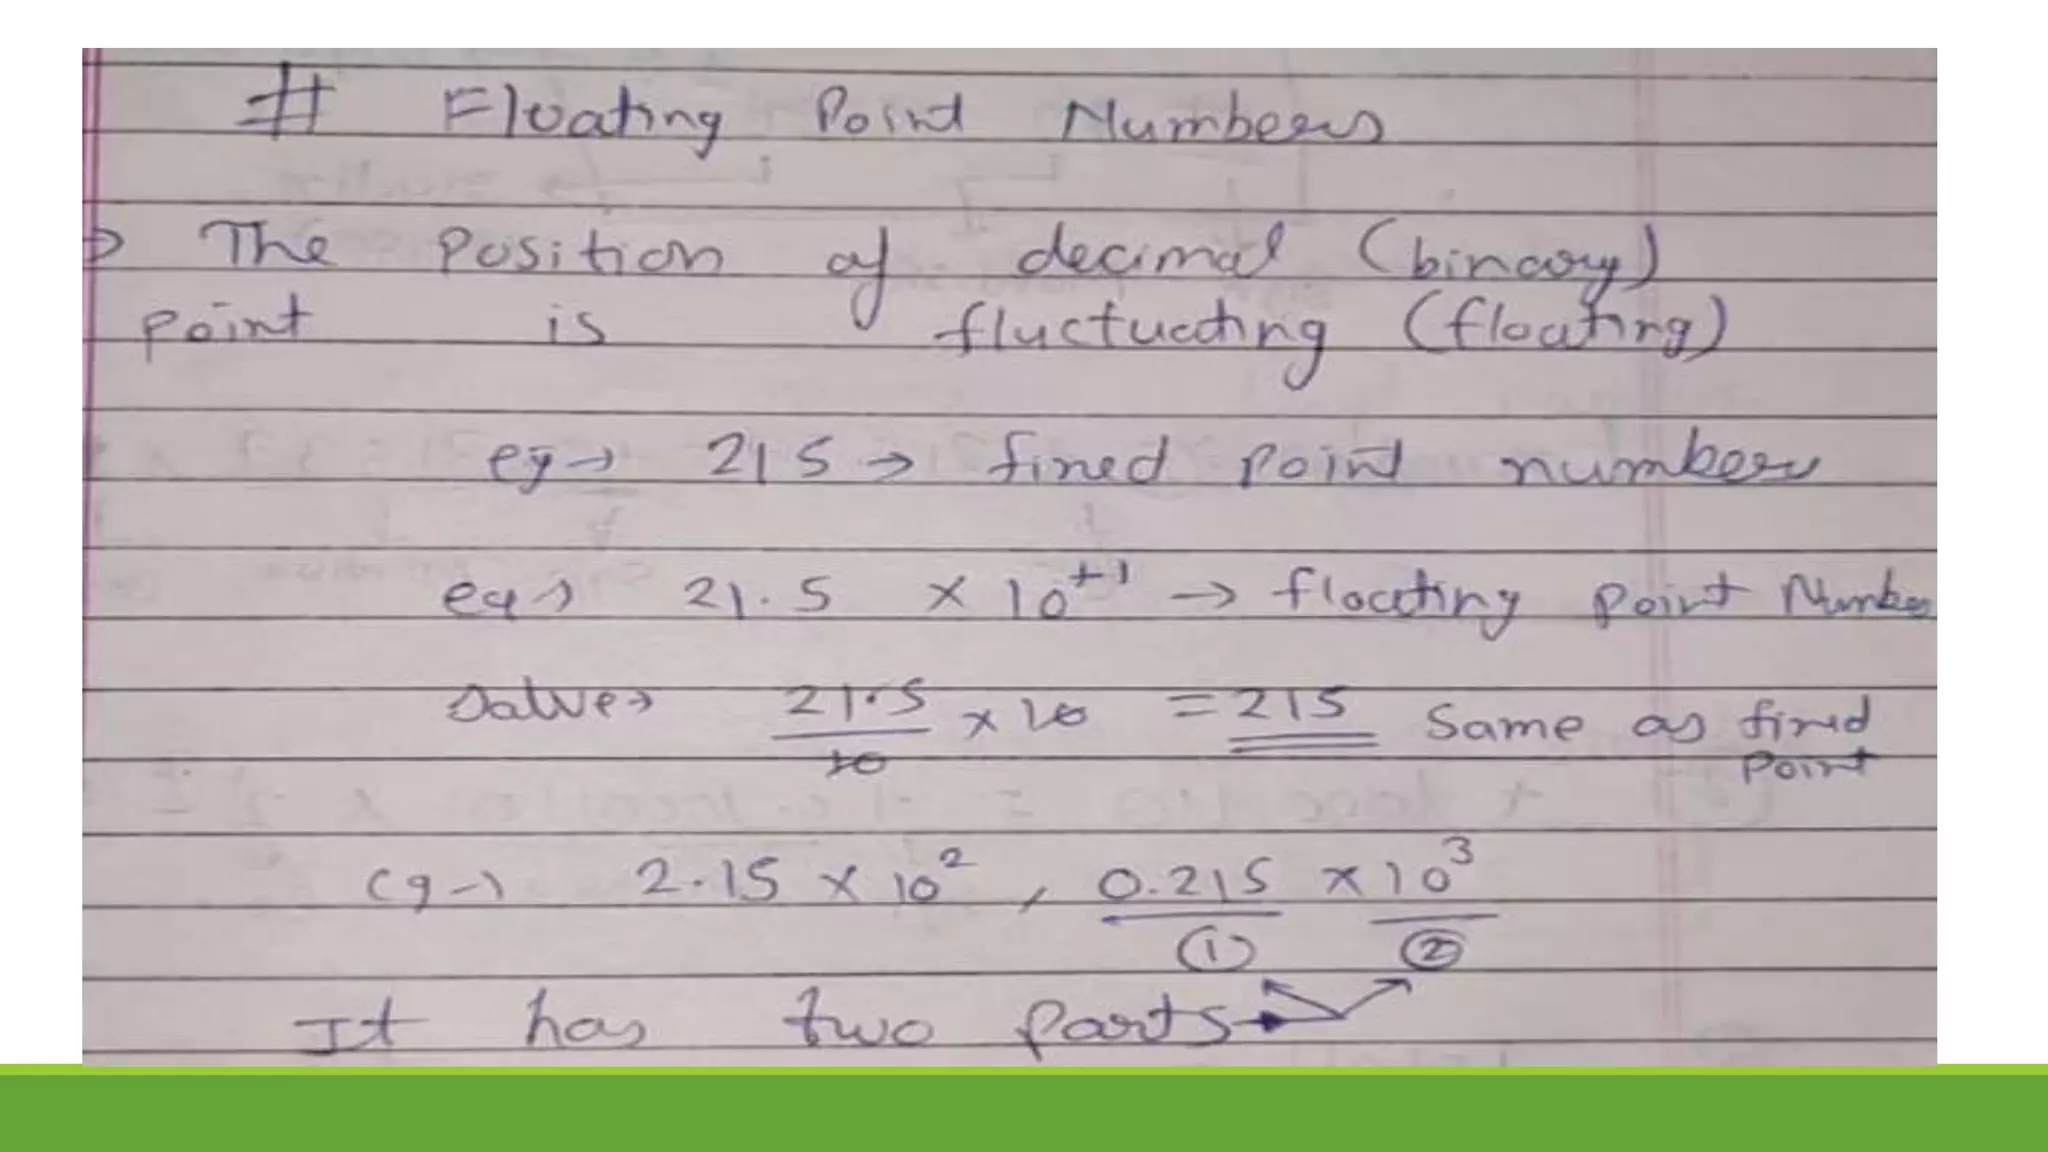 # Floating Point Numbers
→ The Position of decimal (binary)
point is fluctuating (floating)
eg → 215 → fixed point numbers
eg → 21.5 × 10⁺¹ → floating point Number
Solve → 21.5/10 × 10 = 215 Same as fixed
Point
eg → 2.15 × 10², 0.215 × 10³
① ②
It has two parts →